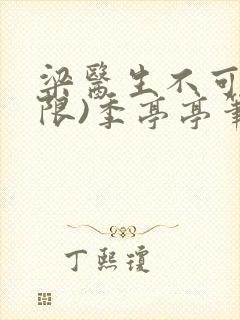 梁醫生不可
限)季亭亭筆
丁熙瓊